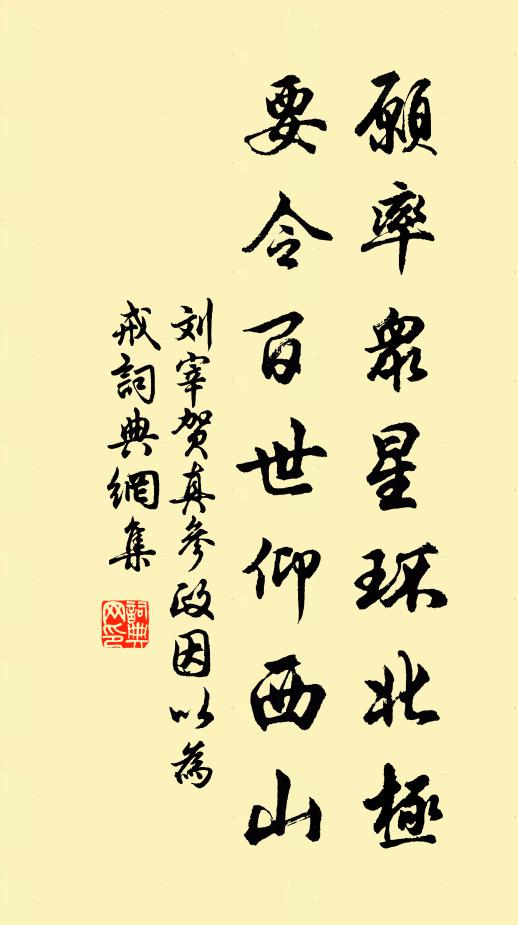 願率衆星环北極
要令百世仰西山
刘宰贺真参政因以為
戒詞典網集
詞典网印